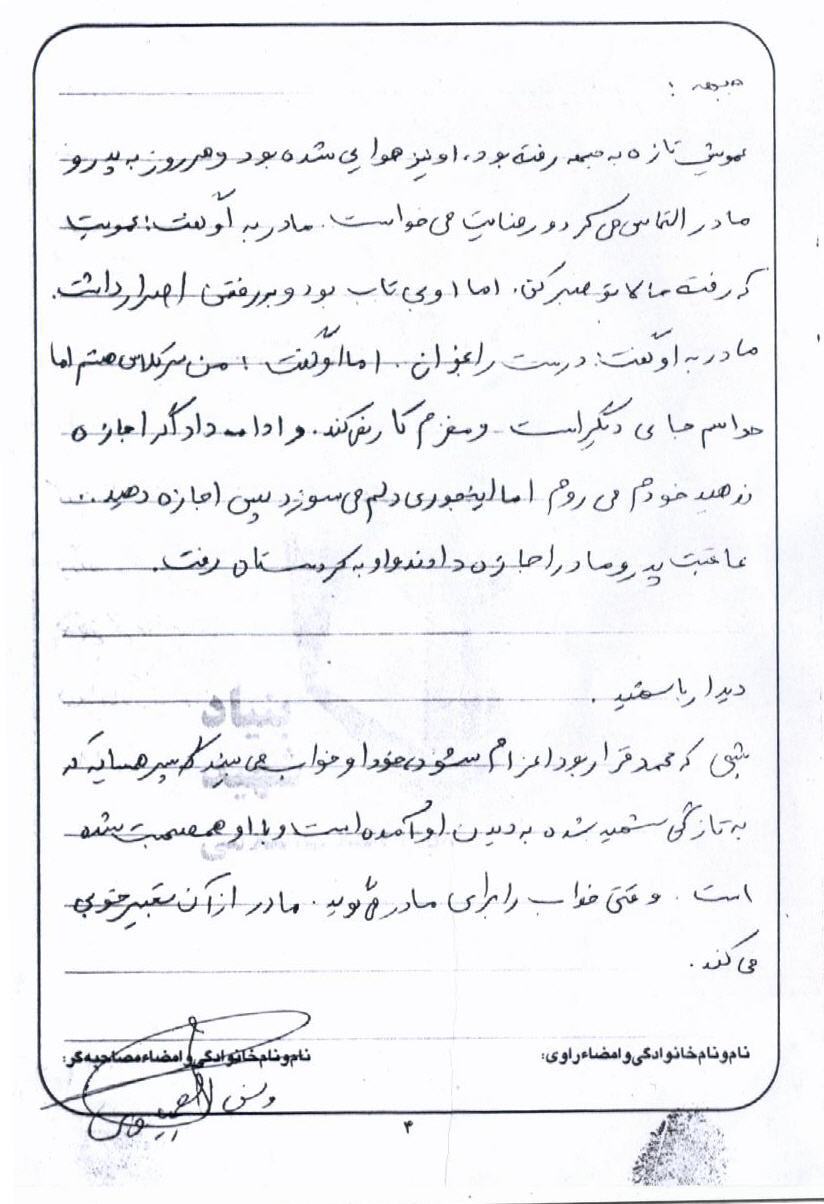 جبهه :
عمویش تازه به جبهه رفته بود، او نیز هوایی شده بود و هر روز به پدر و
مادر التماس می کرد و رضایت می خواست. مادر به او گفت: عمویت
که رفته حالا تو صبر کن. اما او بی تاب بود و بر رفتن اصرار داشت.
مادر به او گفت: درست را بخوان. اما او گفت: من سر کلاس هستم اما
حواسم جای دیگر است و مغزم کار نمی کند. و ادامه داد اگر اجازه
ندهید خودم می روم اما اینجوری دلم می سوزد پس اجازه دهید..
عاقبت پدر و مادر اجازه دادند و او به کردستان رفت.
دیدار با شهید .
شبی که محمد قرار بود اعزام شود، خود او خواب می بیند که پسر همسایه که
به تازگی شهید شده به دیدن او آمده است و با او هم صحبت شده
است. وقتی خواب را برای مادر می گوید. مادر از آن تعبیر خوبی
می کند.
نام و نام خانوادگی و امضاء راوی:
نام و نام خانوادگی و امضاء مصاحبه گر:
۴